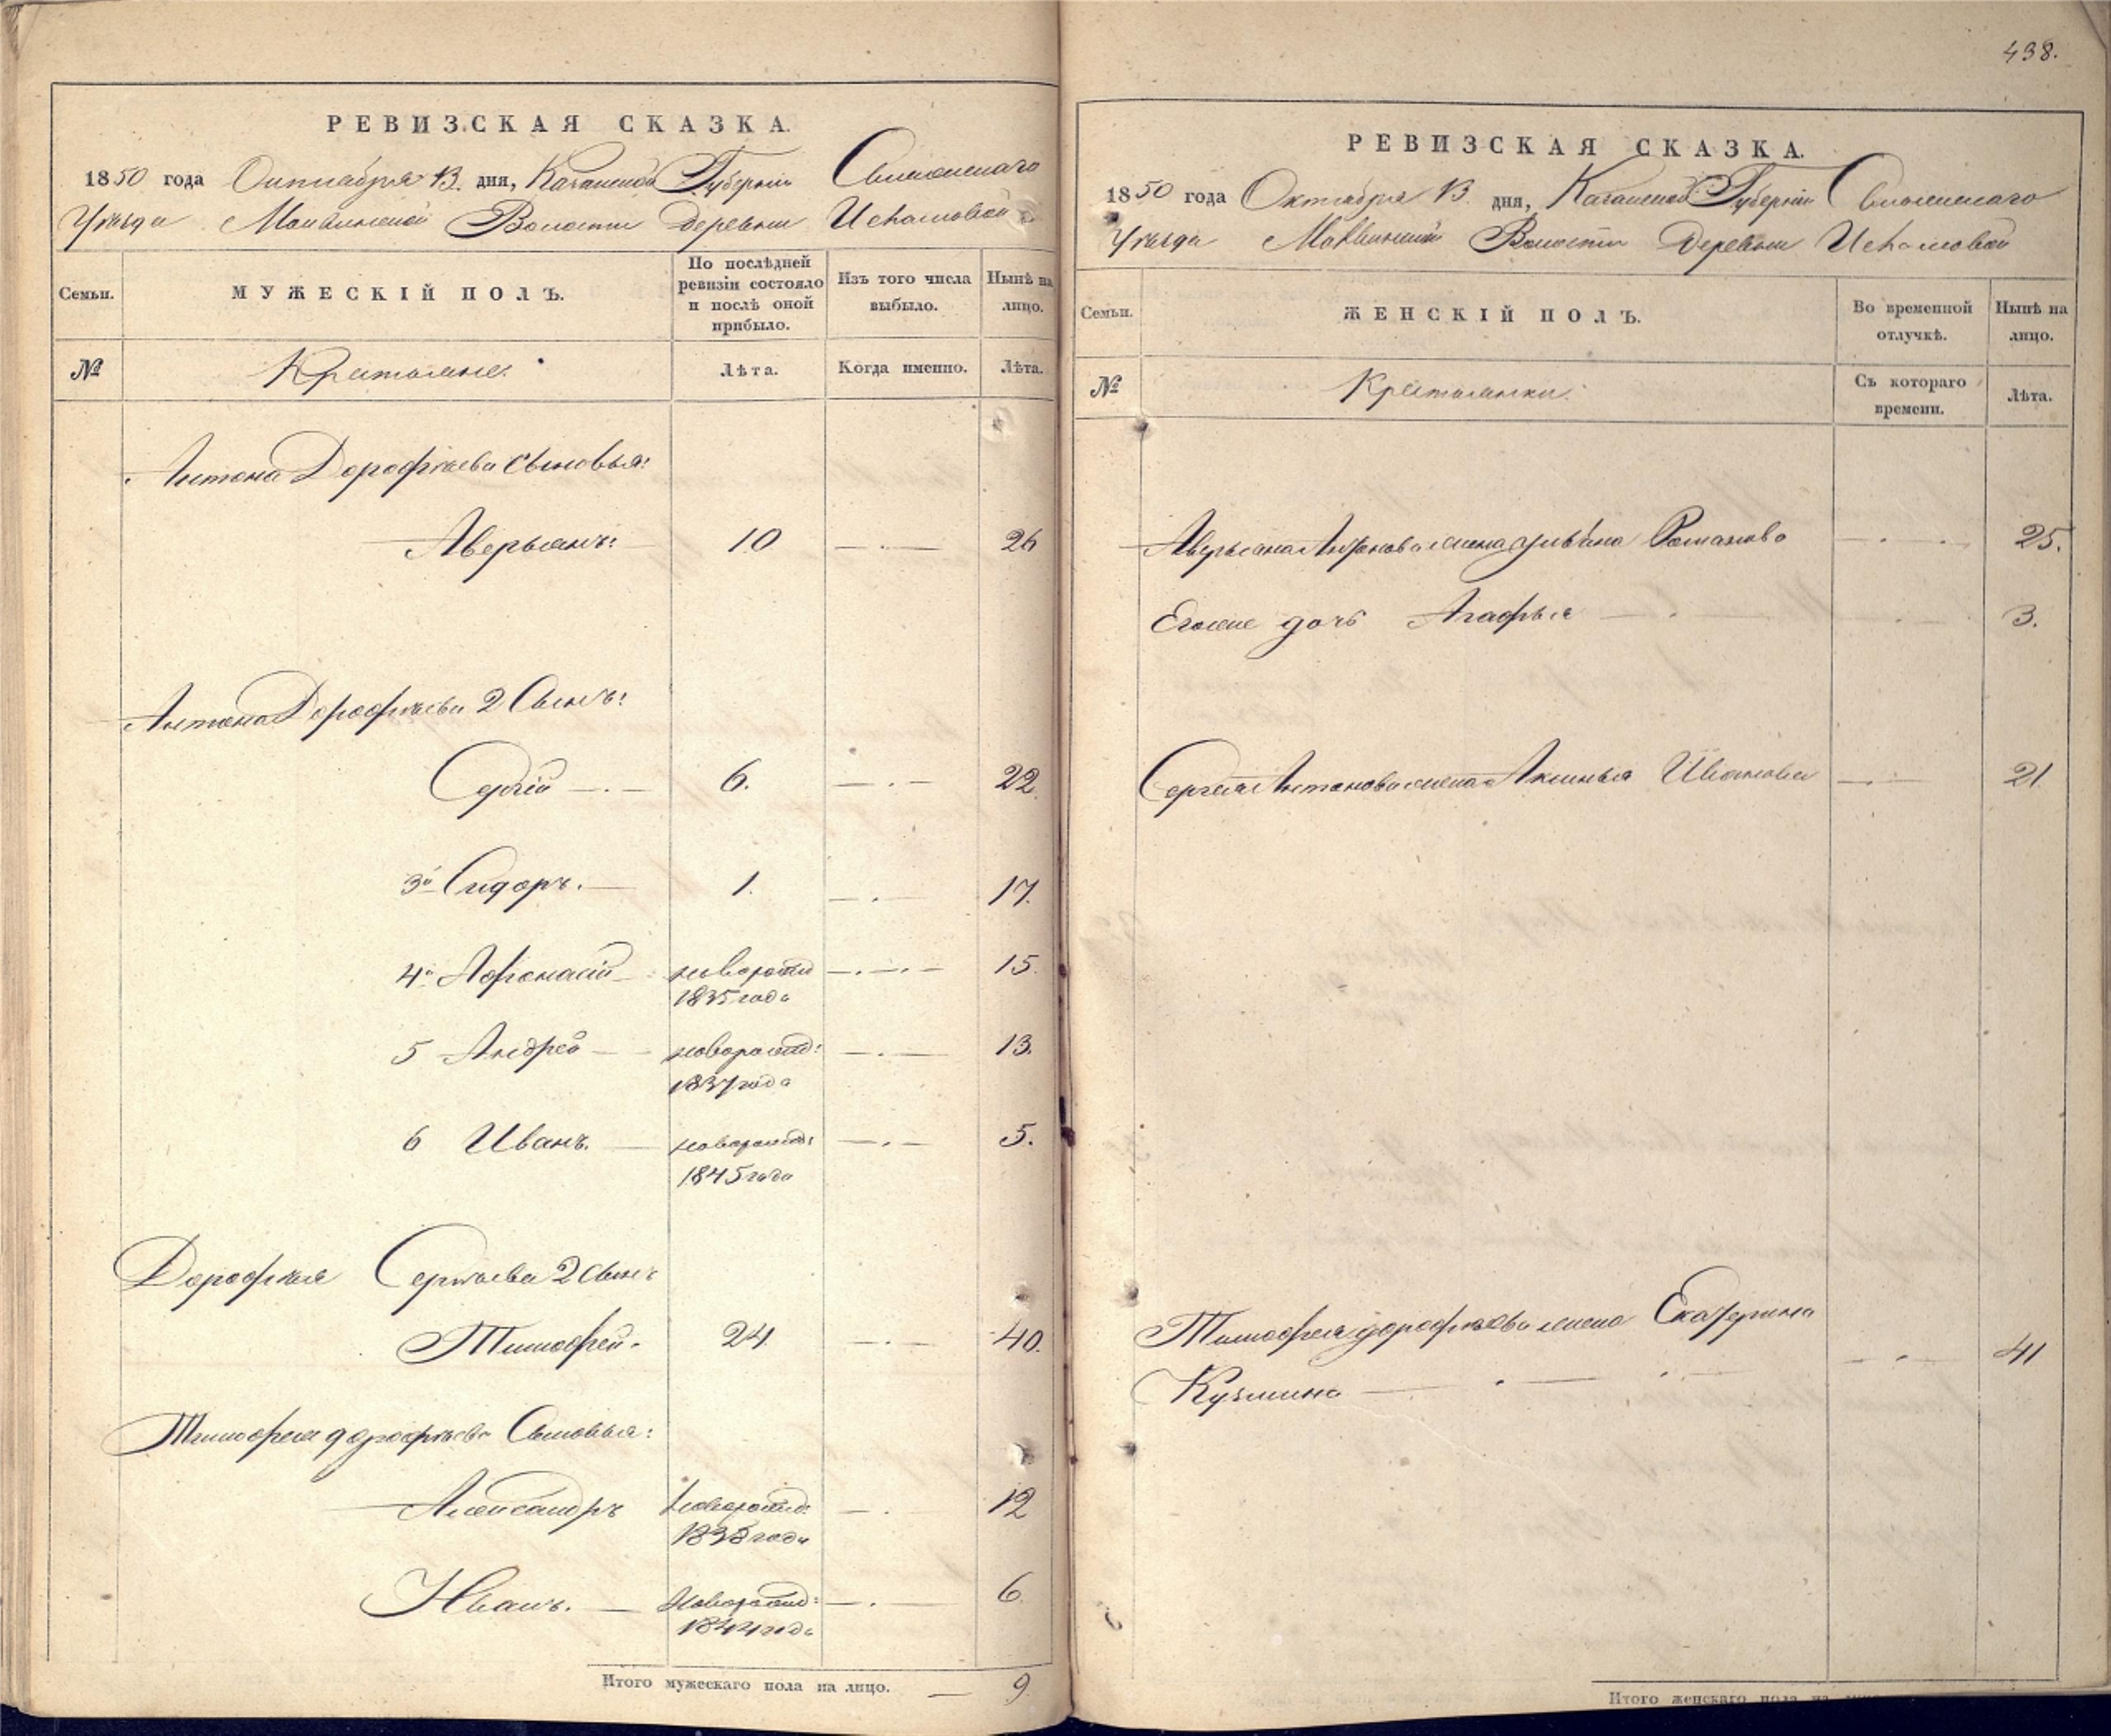 РЕВИЗСКАЯ СКАЗКА.
1850 года Октября 13. дня, Казанской Губерніи Свіяжскаго
Уѣзда Маквинской Волости Деревни
Семьи.
МУЖЕСКІЙ ПОЛЪ.
По послѣдней ревизіи состояло и послѣ оной прибыло.
Изъ того числа выбыло.
Нынѣ на лицо.
№
Крестьяне.
Лѣта.
Когда именно.
Лѣта.
Антона Дорофѣева сыновья:
Аверьянъ: 10 26
Антона Дорофѣева 2 Сынъ:
Сергѣй 6. 22.
3й Сидоръ. 1. 17.
4й Афонасій новорожд 15.
1835 года
5 Андрей новорожд: 13.
1837 года
6 Иванъ. новорожд: 5.
1845 года
Дорофея Сергѣева 2 сынъ
Тимофей. 24 40.
Тимофея дорофѣева Сыновья:
Александръ новорожд: 12
1838 года
Иванъ. Новорожд: 6
1844 года
Итого мужескаго пола на лицо. 9
438.
РЕВИЗСКАЯ СКАЗКА.
1850 года Октября 13. дня, Казанской Губерніи Свіяжскаго
Уѣзда Маквинской Волости Деревни
Семьи.
ЖЕНСКІЙ ПОЛЪ.
Во временной отлучкѣ.
Нынѣ на лицо.
№
Крестьянки.
Съ котораго времени.
Лѣта.
Аверьяна Антонова жена Ульяна Романова 25.
Егоже дочь Агафья 3.
Сергея Антонова жена Аксинья Иванова 21
Тимофея дорофѣева жена Екатерина
Кузмина 41
Итого женскаго пола на